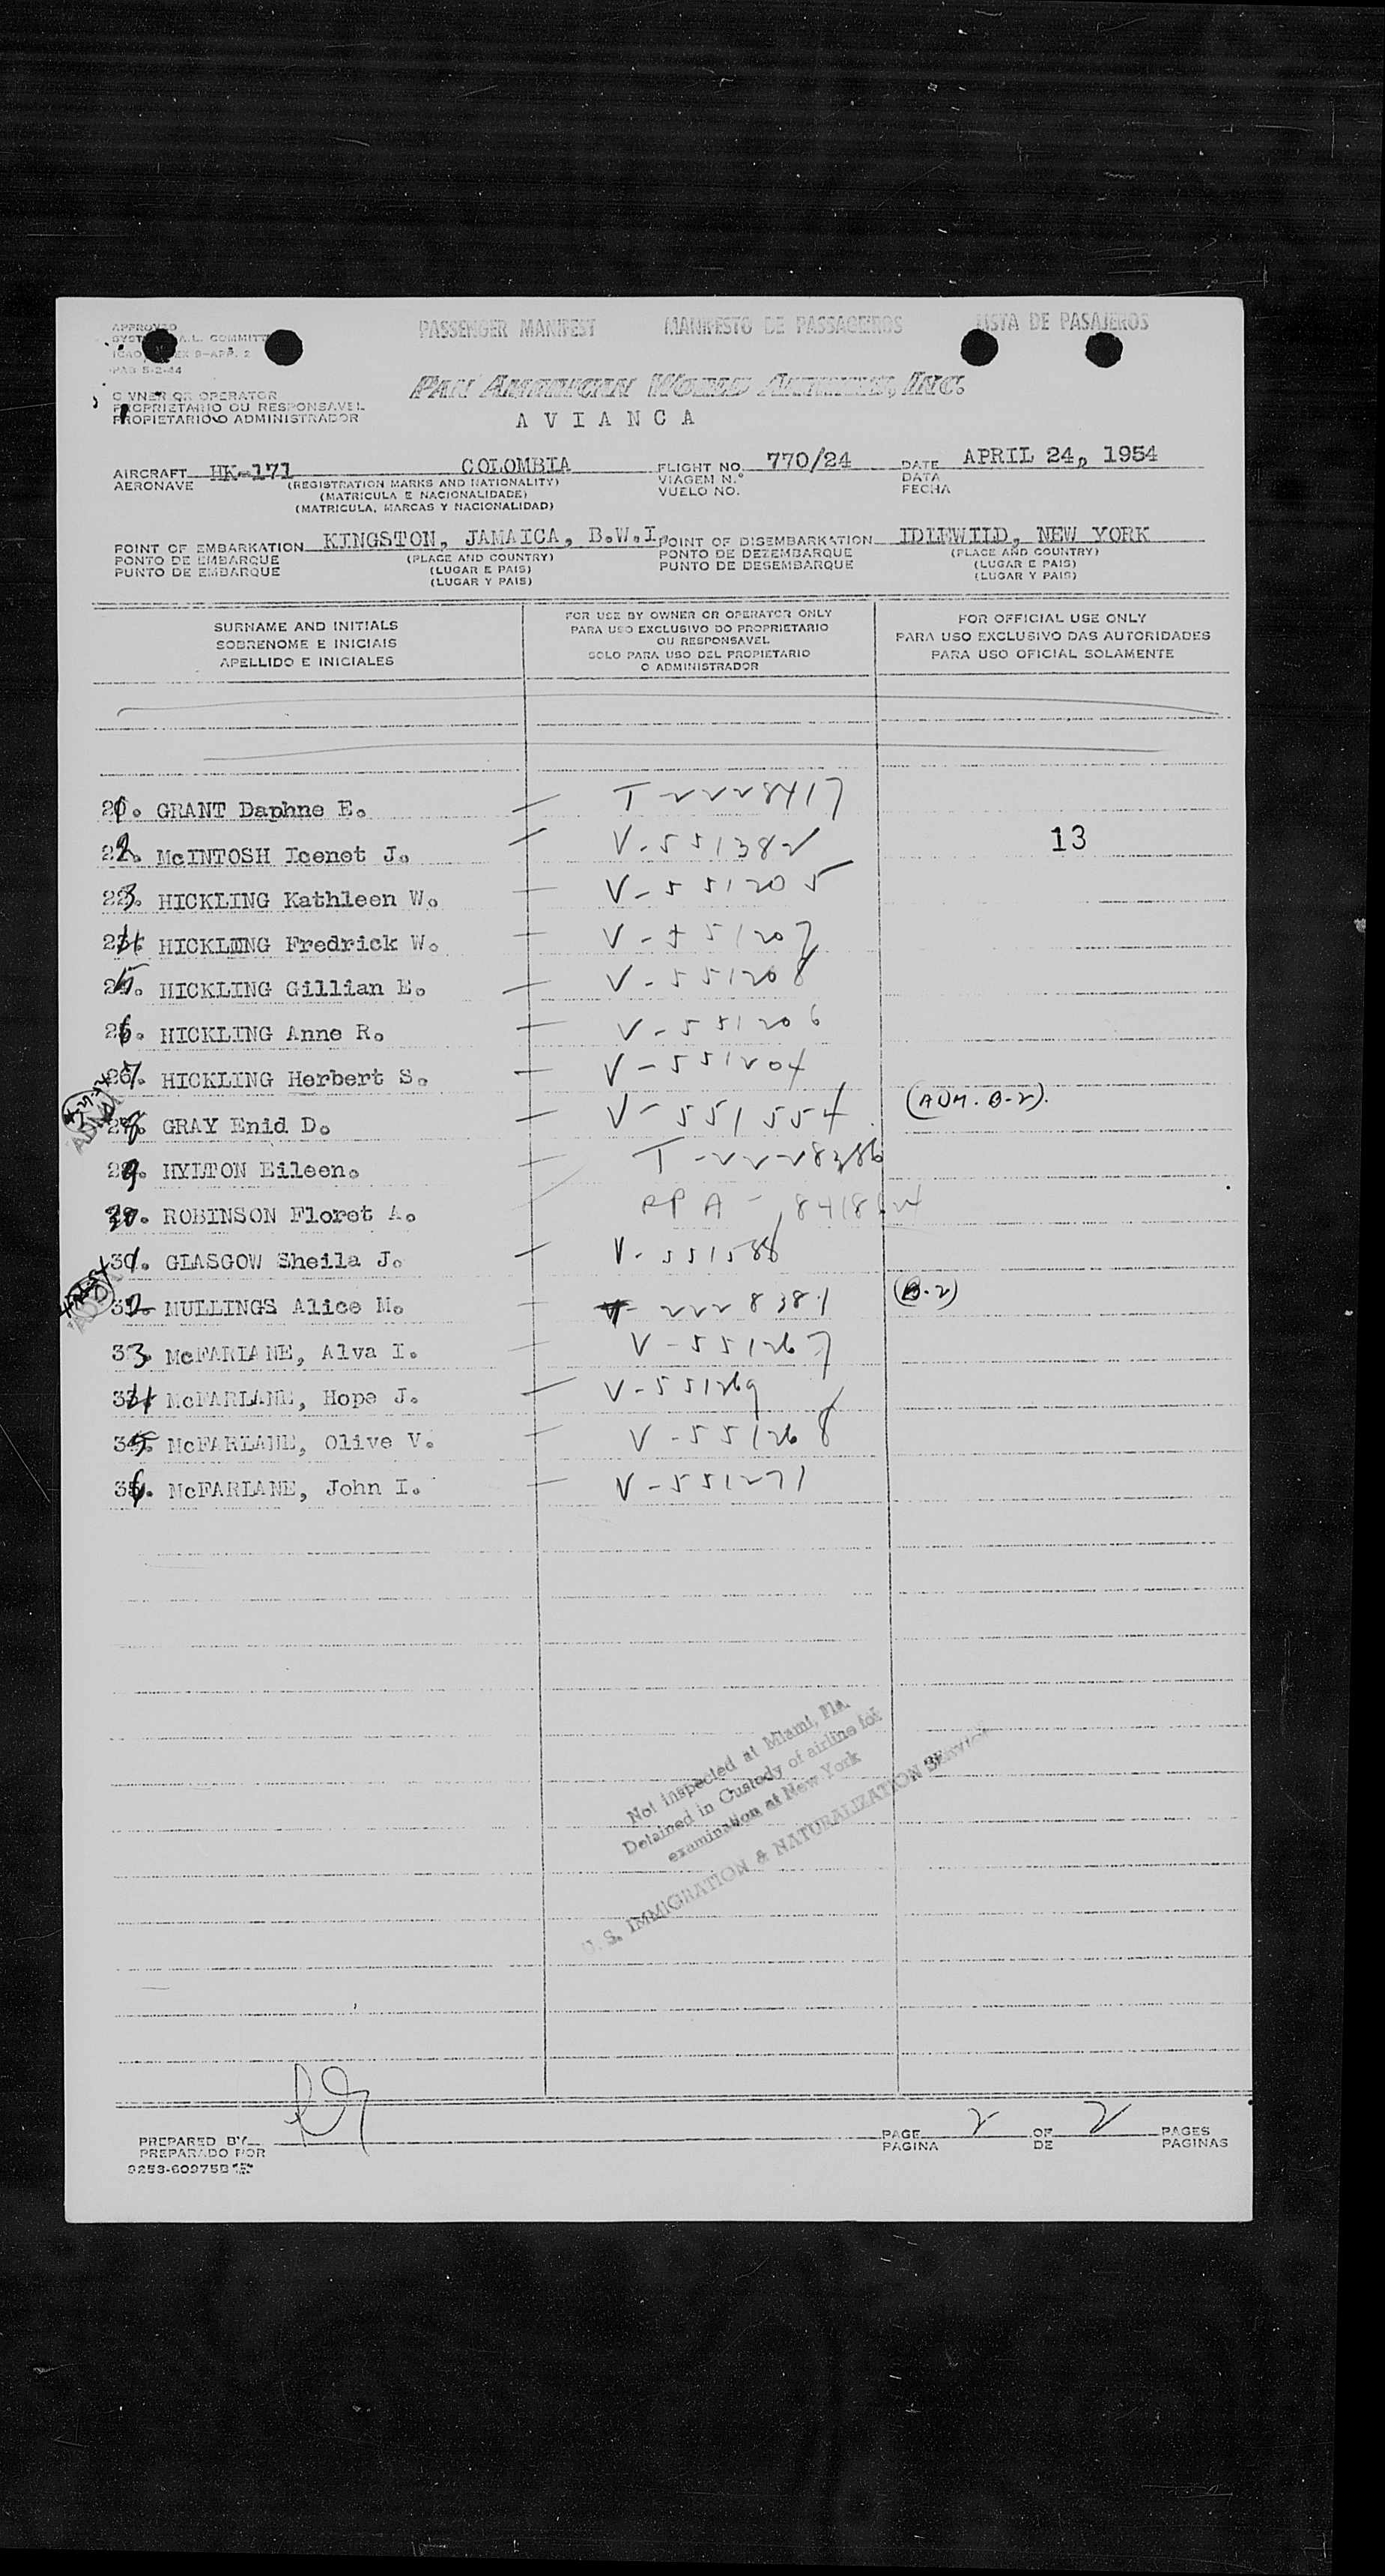 APPROVED
PASSENGER MANIFEST MANIFESTO DE PASSAGEIROS LISTA DE PASAJEROS
PAN AMERICAN WORLD AIRWAYS, INC.
OWNER OR OPERATOR
PROPRIETARIO OU RESPONSAVEL
PROPIETARIO O ADMINISTRADOR
AVIANCA
AIRCRAFT HK-171 COLOMBIA FLIGHT NO. 770/24 DATE APRIL 24, 1954
AERONAVE (REGISTRATION MARKS AND NATIONALITY) VIAGEM N.º DATA
(MATRICULA E NACIONALIDADE) VUELO NO. FECHA
(MATRICULA, MARCAS Y NACIONALIDAD)
POINT OF EMBARKATION KINGSTON, JAMAICA, B.W.I. POINT OF DISEMBARKATION IDLEWILD, NEW YORK
PONTO DE EMBARQUE (PLACE AND COUNTRY) PONTO DE DEZEMBARQUE (PLACE AND COUNTRY)
PUNTO DE EMBARQUE (LUGAR E PAIS) PUNTO DE DESEMBARQUE (LUGAR E PAIS)
(LUGAR Y PAIS) (LUGAR Y PAIS)
SURNAME AND INITIALS
SOBRENOME E INICIAIS
APELLIDO E INICIALES
FOR USE BY OWNER OR OPERATOR ONLY
PARA USO EXCLUSIVO DO PROPRIETARIO
OU RESPONSAVEL
SOLO PARA USO DEL PROPIETARIO
O ADMINISTRADOR
FOR OFFICIAL USE ONLY
PARA USO EXCLUSIVO DAS AUTORIDADES
PARA USO OFICIAL SOLAMENTE
21. GRANT Daphne E. — T-2228417
22. McINTOSH Icenet J. — V-551382 13
23. HICKLING Kathleen W. — V-551205
24. HICKLING Fredrick W. — V-551207
25. HICKLING Gillian E. — V-551208
26. HICKLING Anne R. — V-551206
27. HICKLING Herbert S. — V-551204
28. GRAY Enid D. — V-551554 (ADM. B-2).
29. HYLTON Eileen. — T-2228386
30. ROBINSON Floret A.
31. GLASGOW Sheila J. — V-551588
32. MULLINGS Alice M. — 2228381 (B-2)
33. McFARLANE, Alva I. — V-551267
34. McFARLANE, Hope J. — V-551269
35. McFARLANE, Olive V. — V-551268
36. McFARLANE, John I. — V-551271
Not inspected at Miami, Fla.
Detained in Custody of airline for
examination at New York
U. S. IMMIGRATION & NATURALIZATION SERVICE
PREPARED BY PAGE 2 OF 2 PAGES
PREPARADO POR PAGINA DE PAGINAS